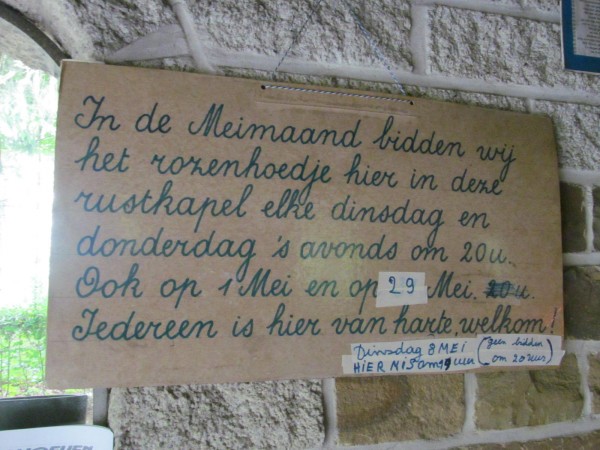 In de Meimaand bidden wij
het rozenhoedje hier in deze
rustkapel elke dinsdag en
donderdag 's avonds om 20 u.
Ook op 1 Mei en op 29 Mei. 20u.
Iedereen is hier van harte welkom!
Dinsdag 8 MEI (geen bidden
HIER MIS om 19 uur om 20 uur)